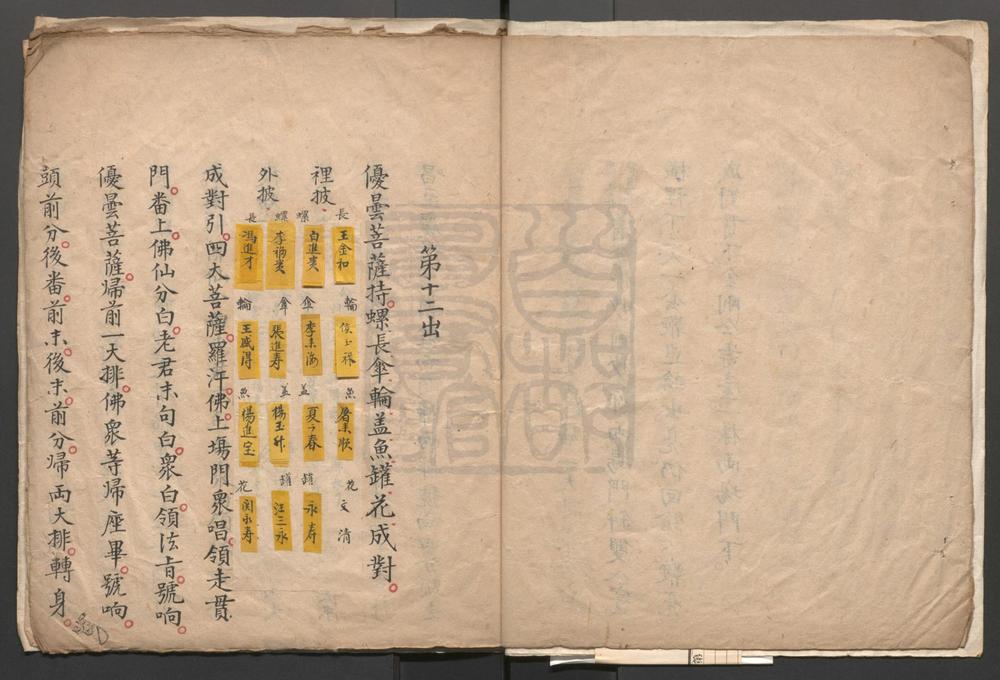 第十二出
優曇菩薩持螺長傘輪盖魚罐花成對
裡披
外披
長 王金和 輪 魚 花 文清
螺 白進貴 傘 李来海 盖 夏之春 罐 永寿
螺 李福贵 傘 張進寿 盖 楊玉升 罐 汪三永
長 馮進才 輪 王盛得 魚 楊進宝 花 関永寿
成對引四大菩薩羅汗佛上塲門衆唱領走貫
門畨上佛仙分白老君末句白衆白領法旨號响
優曇菩薩帰前一大排佛衆等帰座畢號响
頭前分後畨前末後末前分帰両大排轉身